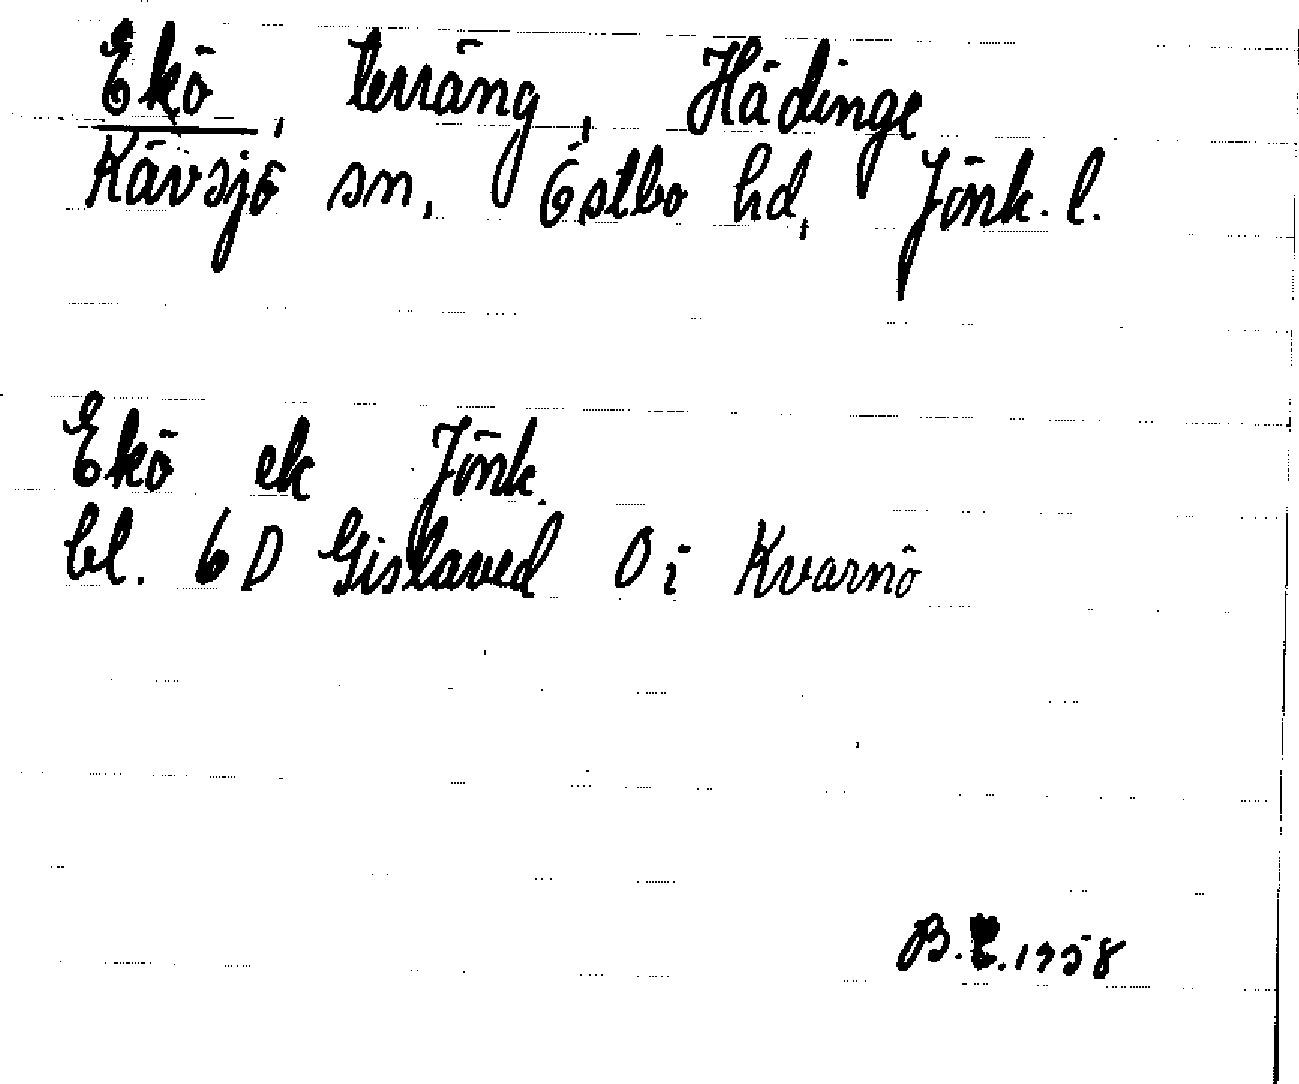 Ekö, terräng, Hädinge
Kävsjö sn, Östbo hd, Jönk. l.
Ekö ek Jönk.
bl. 6 D Gislaved O i Kvarnö
B.E. 1958